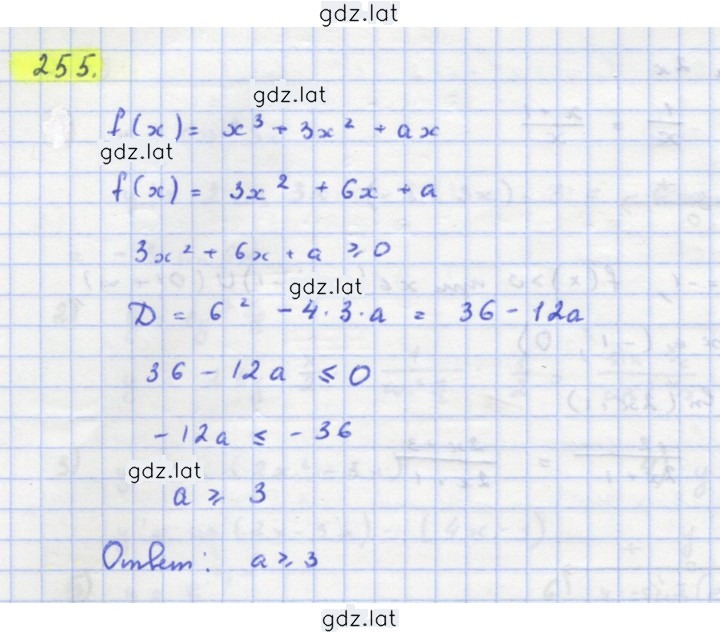 gdz.lat
255.
gdz.lat
f(x) = x³ + 3x² + ax
gdz.lat
f(x) = 3x² + 6x + a
3x² + 6x + a ≥ 0
gdz.lat
D = 6² - 4·3·a = 36 - 12a
36 - 12a ≤ 0
-12a ≤ -36
gdz.lat
a ≥ 3
Ответ: a ≥ 3
gdz.lat